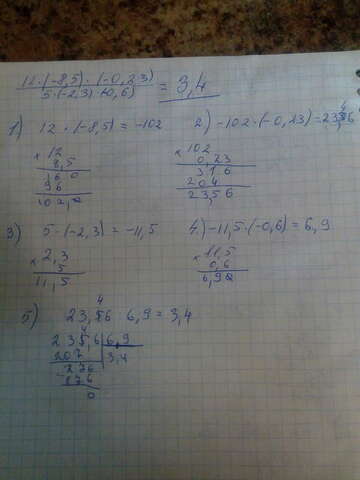 12·(-8,5)·(-0,23)
5·(-2,3)·(-0,6) = 3,4
1) 12·(-8,5) = -102
× 12
8,5
96
102,0
2) -102·(-0,23) = 23,46
× 102
0,23
204
3) 5·(-2,3) = -11,5
× 2,3
5
11,5
4) -11,5·(-0,6) = 6,9
× 11,5
0,6
6,90
5) 23,46 6,9 = 3,4
234,6 6,9
207 3,4
276
276
0